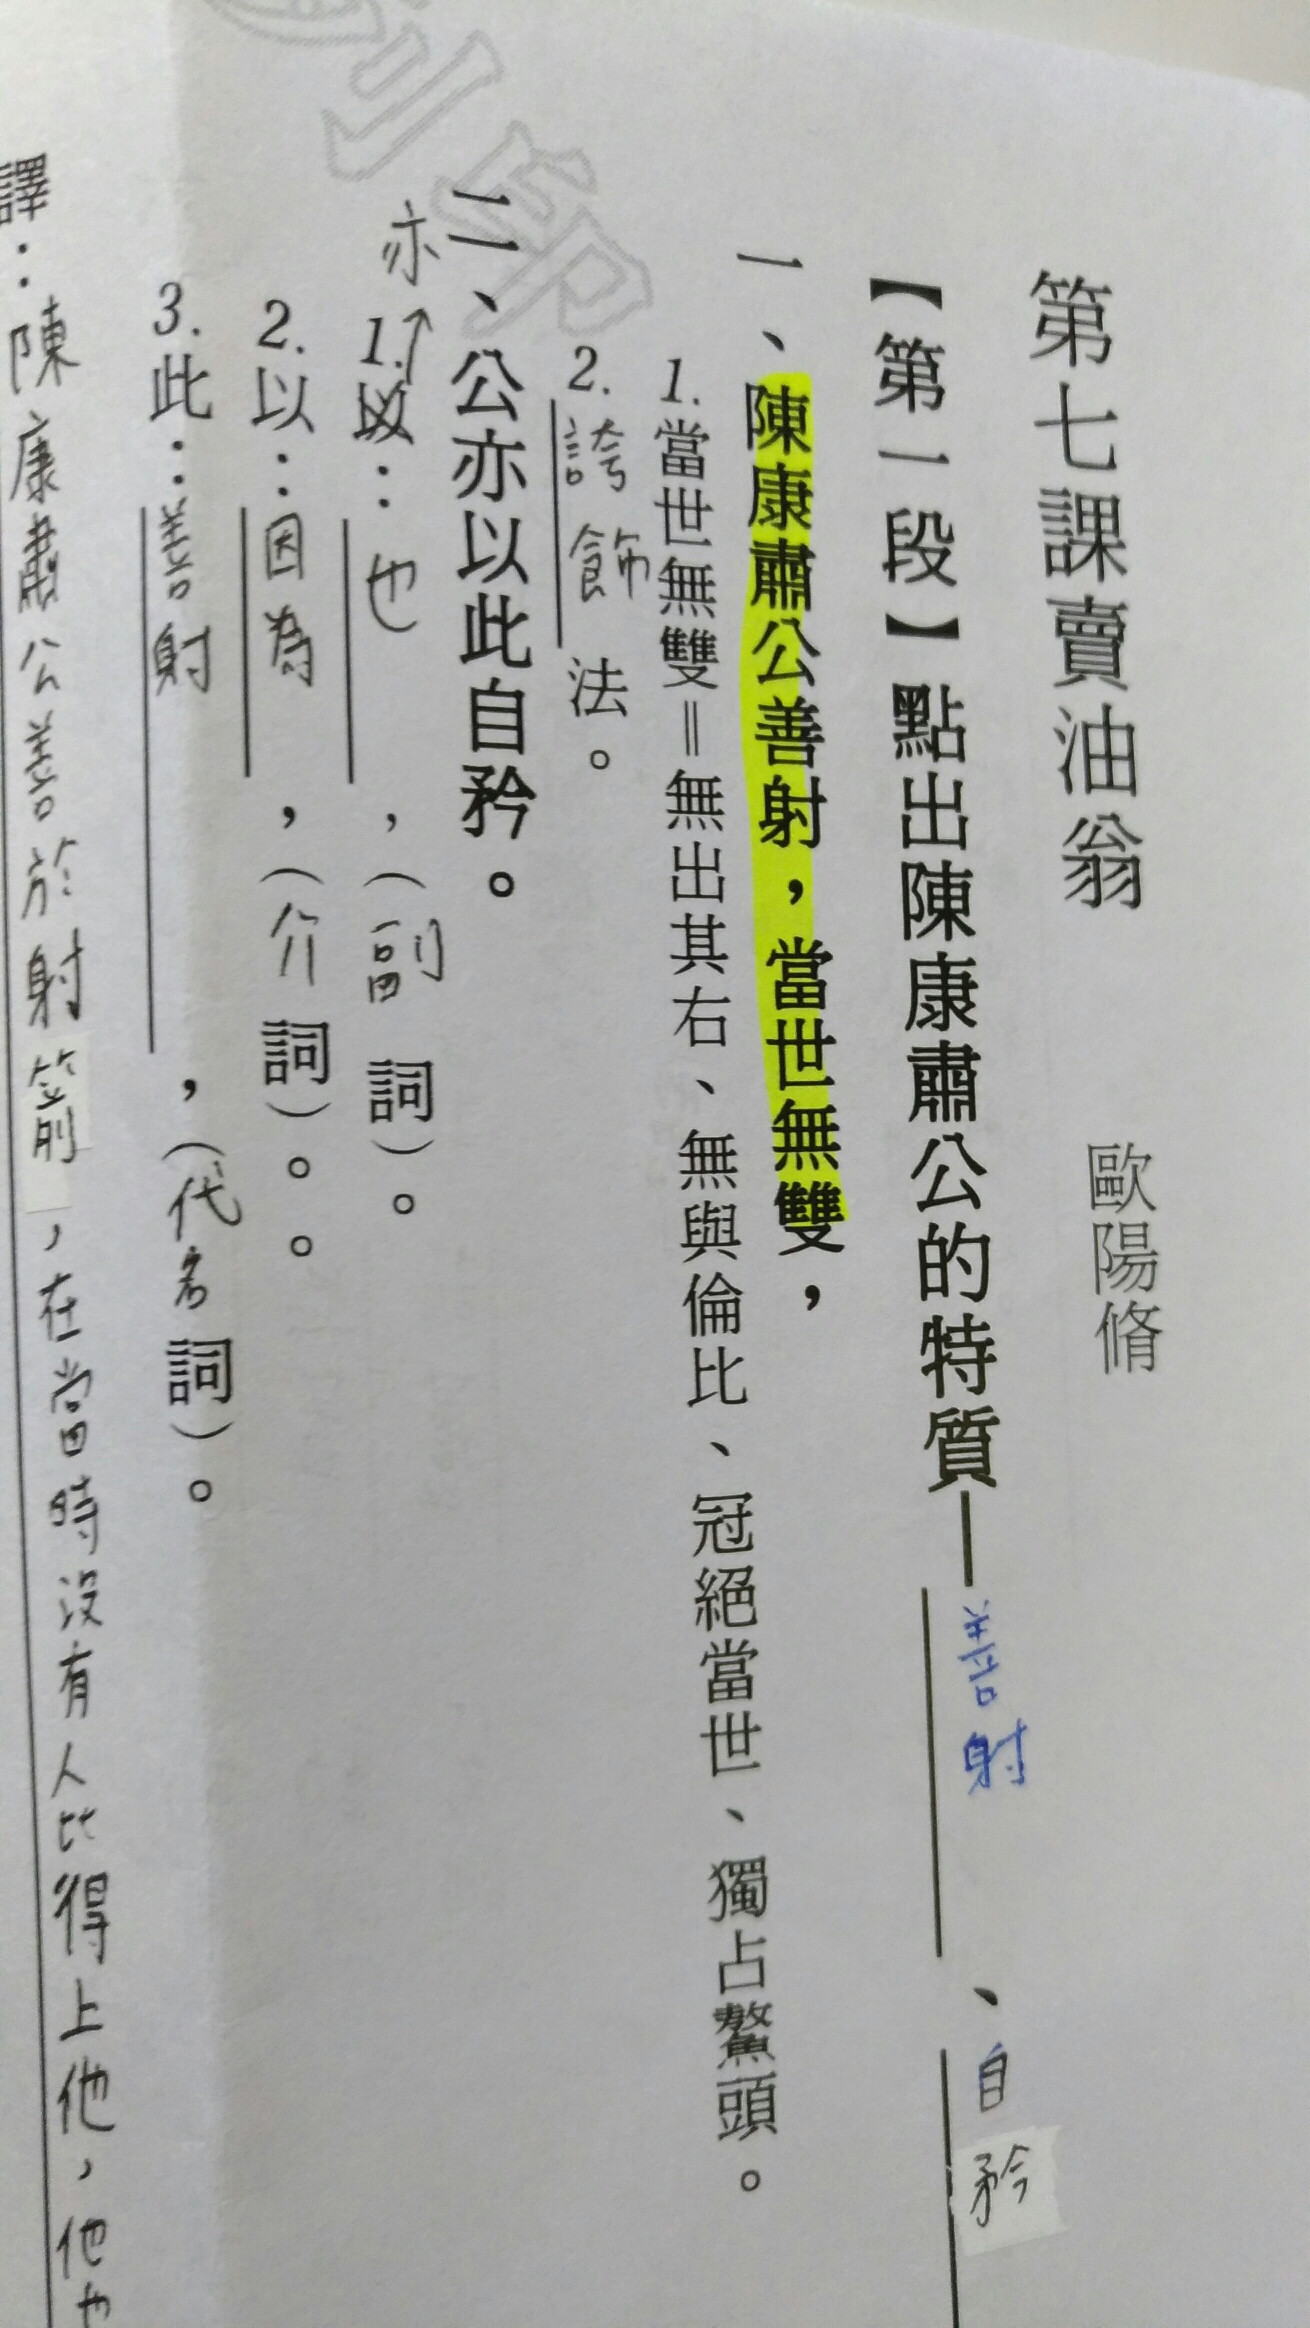 第七課賣油翁 歐陽脩
【第一段】點出陳康肅公的特質—善射、自矜
一、陳康肅公善射，當世無雙，
1.當世無雙＝無出其右、無與倫比、冠絕當世、獨占鰲頭。
2.誇飾法。
二、公亦以此自矜。
亦
1.：也，（副詞）。
2.以：因為，（介詞）。。
3.此：善射，（代名詞）。
譯：陳康肅公善於射箭，在當時沒有人比得上他，他也